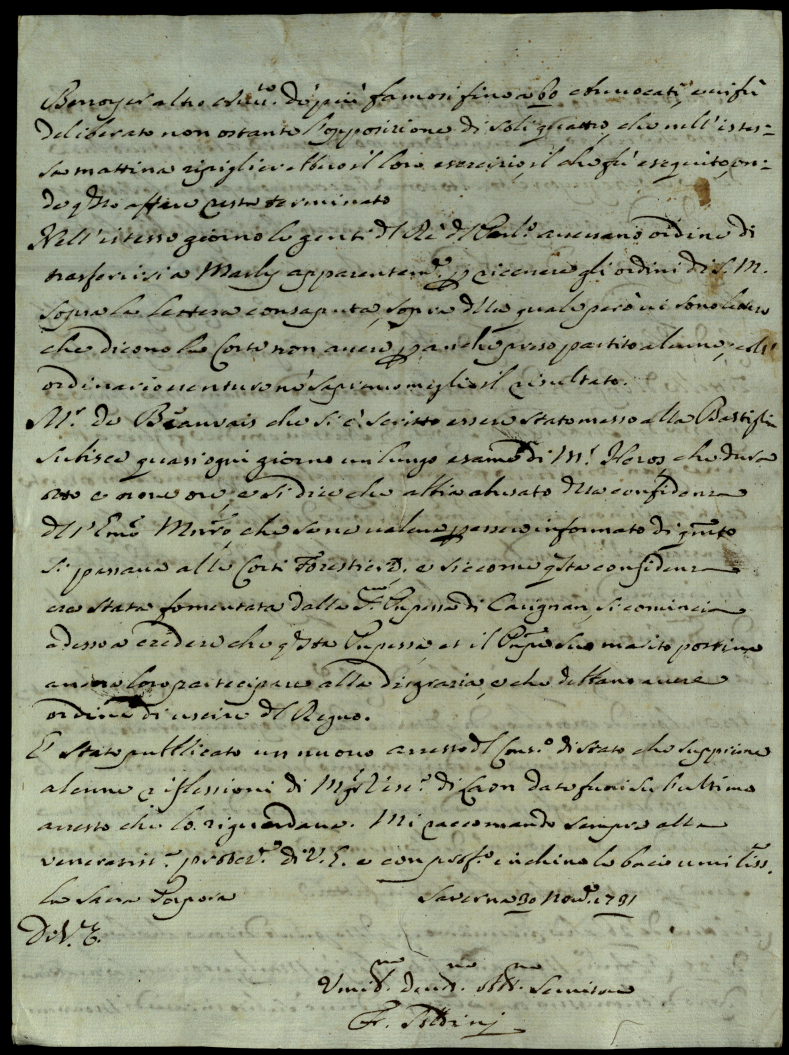 Berroyer altro de' più famosi fino a 60 convocati, e vi fù
deliberato non ostante l'opposizione di soli quattro, che nell'istes=
sa mattina ripigliarebbero il loro esercizio, il che fù eseguito, on=
de q̃sto affare resta terminato
Nell'istesso giorno le genti del Rè del Parl.º avevano ordine di
trasferirsi a Marly apparentem.te p̱ ricevere gli ordini di S. M.
sopra la lettera consaputa, sopra della quale però vi sono lettere
che dicono la Corte non avere p̱ anche preso partito alcuno; coll'
ordinario venturo ne sapremo meglio il risultato.
M.r de Beauvais che si è scritto essere stato messo alla Bastiglia
subisce quasi ogni giorno un lungo esame di M.r Heros, che dura
otto e nove ore, e si dice che abbia abusato della confidenza
dell'Emo Mnrõ, che se ne valeva p̱ essere informato di q̃nto
si passava alle Corti Forestiere, e siccome q̃sta confidenza
era stata fomentata dalla Pnpessa di Carignan, si comincia
adesso a credere che q̃sta Pnpessa, et il Pnpe suo marito possino
ancora loro partecipare alla disgrazia, e che debbano avere
ordine di uscire del Regno.
E' stato pubblicato un nuovo arresto del Cons.º di Stato che supprime
alcune riflessioni di Mgr Vesc.º di Laon date fuori su l'ultimo
arresto che lo riguardava. Mi raccomando sempre alla
veneratiss.ma di V. E. e con prof.º inchino le bacio umiliss.
la Sacra Porpora
Saverna 30 Nov.e 1731
Di V. E.
Umil.mo Dev.mo Obb.mo Servitore